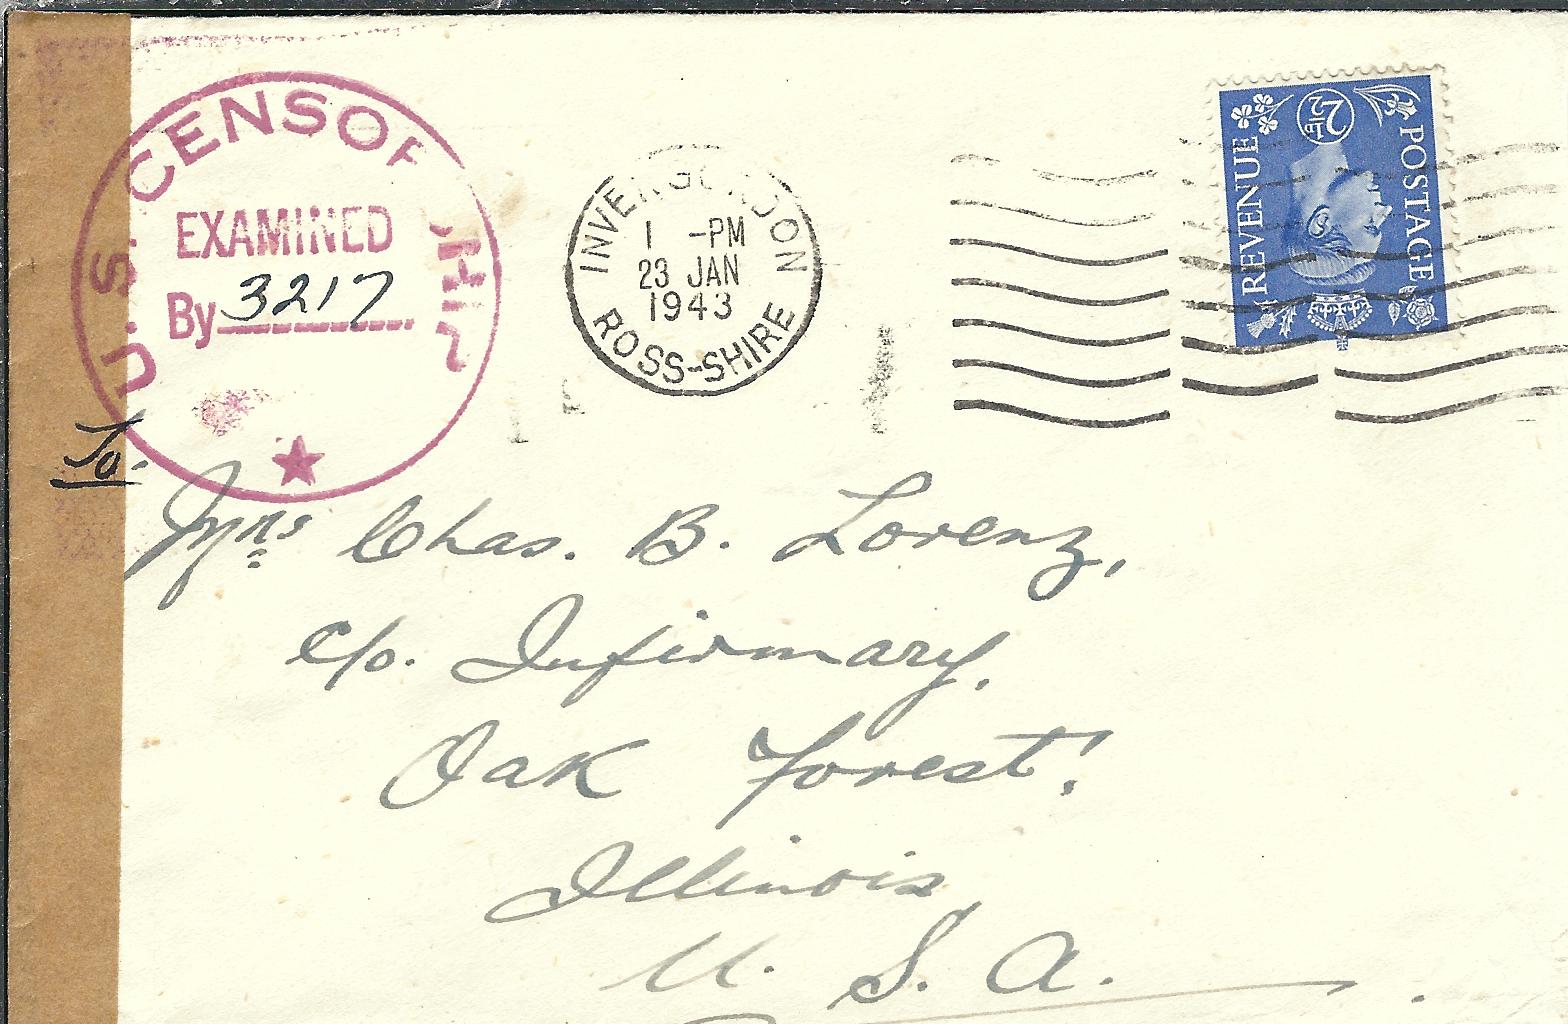 U. S. CENSORSHIP
EXAMINED
By 3217
INVERGORDON
1 -PM
23 JAN
1943
ROSS-SHIRE
POSTAGE
REVENUE
2½D
To:
Mrs Chas. B. Lorenz,
c/o. Infirmary.
Oak Forest.
Illinois
U. S. A.